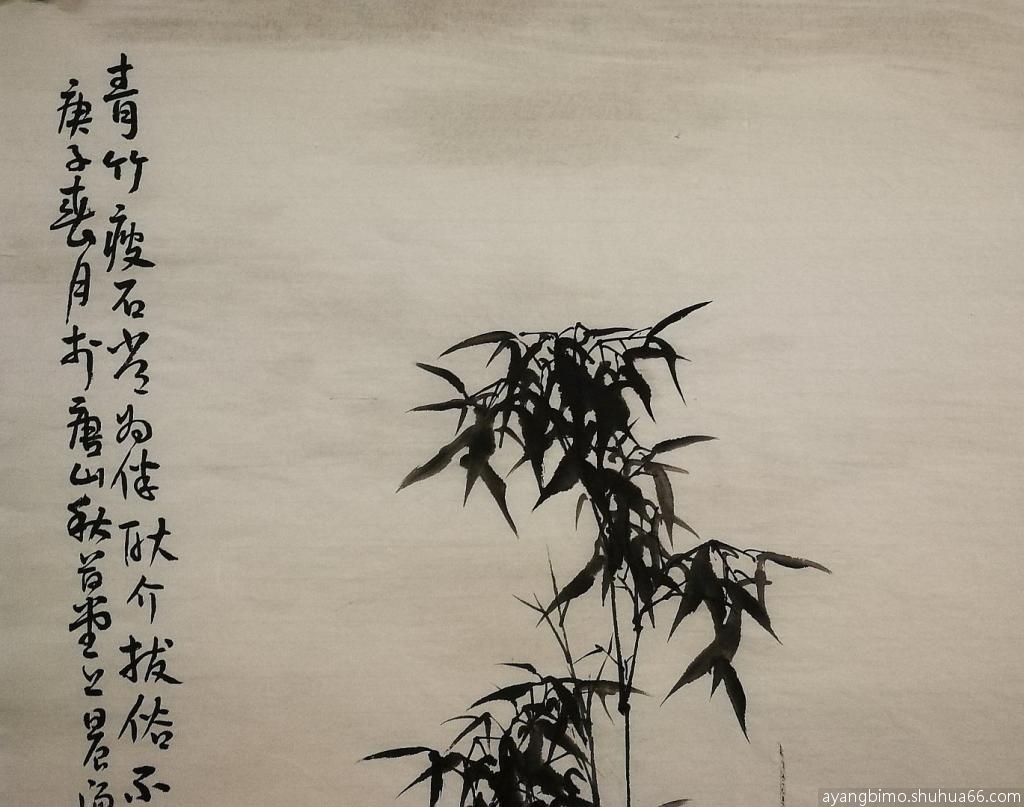 青竹瘦石常为伴耿介拔俗不
庚子春月于唐山秋
ayangbimo.shuhua66.com